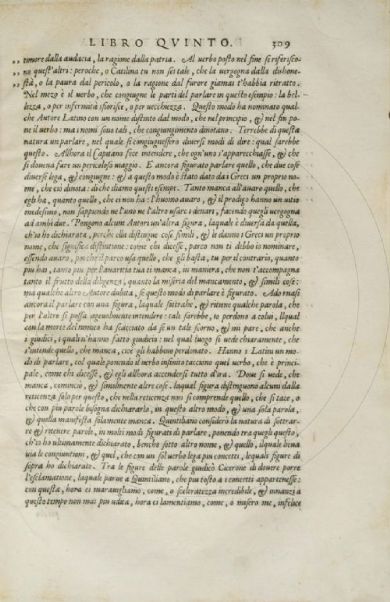 LIBRO QVINTO. 309
timore dalla audacia, la ragione dalla patria. Al verbo posto nel fine si riferisco-
no quest'altri: peroche, o Catilina tu non sei tale, che la vergogna dalla dishone-
stà, o la paura dal pericolo, o la ragione dal furore giamai t'habbia ritratto.
Nel mezo è il verbo, che congiugne le parti del parlare in questo esempio: la bel-
lezza, o per infermità sfiorisce, o per vecchiezza. Questo modo ha nominato qualche
Autore Latino con un nome distinto dal modo, che nel principio, & nel fin po-
ne il verbo: ma i nomi suoi tali, che congiungimento dinotano. Terrebbe di questa
natura un parlare, nel quale si congiugnessero diversi modi di dire: qual sarebbe
questo. Allhora il Capitano fece intendere, che ogn'uno s'apparecchiasse, &
si domina fare un pericoloso viaggio. È ancora figurato parlare quello, che due cose
diverse lega, & congiugne: & a questo modo è stato dato da i Greci un proprio no-
me, che ciò dinota: di che diamo questi esempi. Tanto manca all'avaro quello, che
egli ha, quanto quello, che ei non ha: l'huomo avaro, & il prodigo hanno un vitio
medesimo, non sappendo ne l'uno ne l'altro usare i denari, facendo quegli vergogna
ad ambidue. Pongono alcuni Autori un'altra figura, laquale è diversa da quella,
ch'io ho dichiarata, perche ella distingue cose simili, & le danno i Greci un proprio
nome, che significa distintione: come chi dicesse, parco non ti debbo io nominare,
essendo avaro, poiche il parco usa quello, che gli basta, tu per il contrario, quanto
piu hai, tanto piu per l'avaritia tua ti manca, in maniera, che non t'accompagna
tanto il frutto della diligenza, quanto la miseria del mancamento, & simili cose:
ma qualche altro Autore dubita, se questo modo di parlare è figurato.
ancora il parlare con una figura, laquale sottrahe, & ritiene qualche parola, che
per l'altre si possa agevolmente intendere: tale sarebbe, io perdono a colui, ilqual
con la morte del nemico ha scacciato da se un tale scorno, & mi pare, che anche
i giudici, i quali n'hanno fatto giudicio: nel qual luogo si vede chiaramente, che
s'intende quello, che manca, cioè gli habbino perdonato. Hanno i Latini un mo-
do di parlare, col quale ponendo il verbo infinito tacciono quel verbo, che è princi-
pale, come chi dicesse, & egli allhora accendersi tutto d'ira. Dove si vede, che
manca, cominciò, & similmente altre cose, laqual figura distinguono alcuni dalla
reticenza solo per questo, che nella reticenza non si comprende quello, che si tace, o
che con piu parole bisogna dichiararlo, in questo altro modo, & una sola parola,
& quella manifesta solamente manca. Quintiliano considerò la natura di sottrar-
re & ritenere parole, in molti modi figurati di parlare, ponendo tra quegli questo,
ch'io ho ultimamente dichiarato, benche sotto altro nome, & quello, ilquale lieva
via le congiuntioni, & quel, che con un sol verbo lega piu concetti, lequali figure di
sopra ho dichiarate. Tra le figure delle parole giudicò Cicerone di dovere porre
l'esclamatione, laquale parve a Quintiliano, che piu tosto a i concetti appartenesse:
con questa, hora ci maravigliamo, come, o scelleratezza incredibile, & innanzi a
questo tempo non mai piu udita, hora ci lamentiamo, come, o misero me, infelice